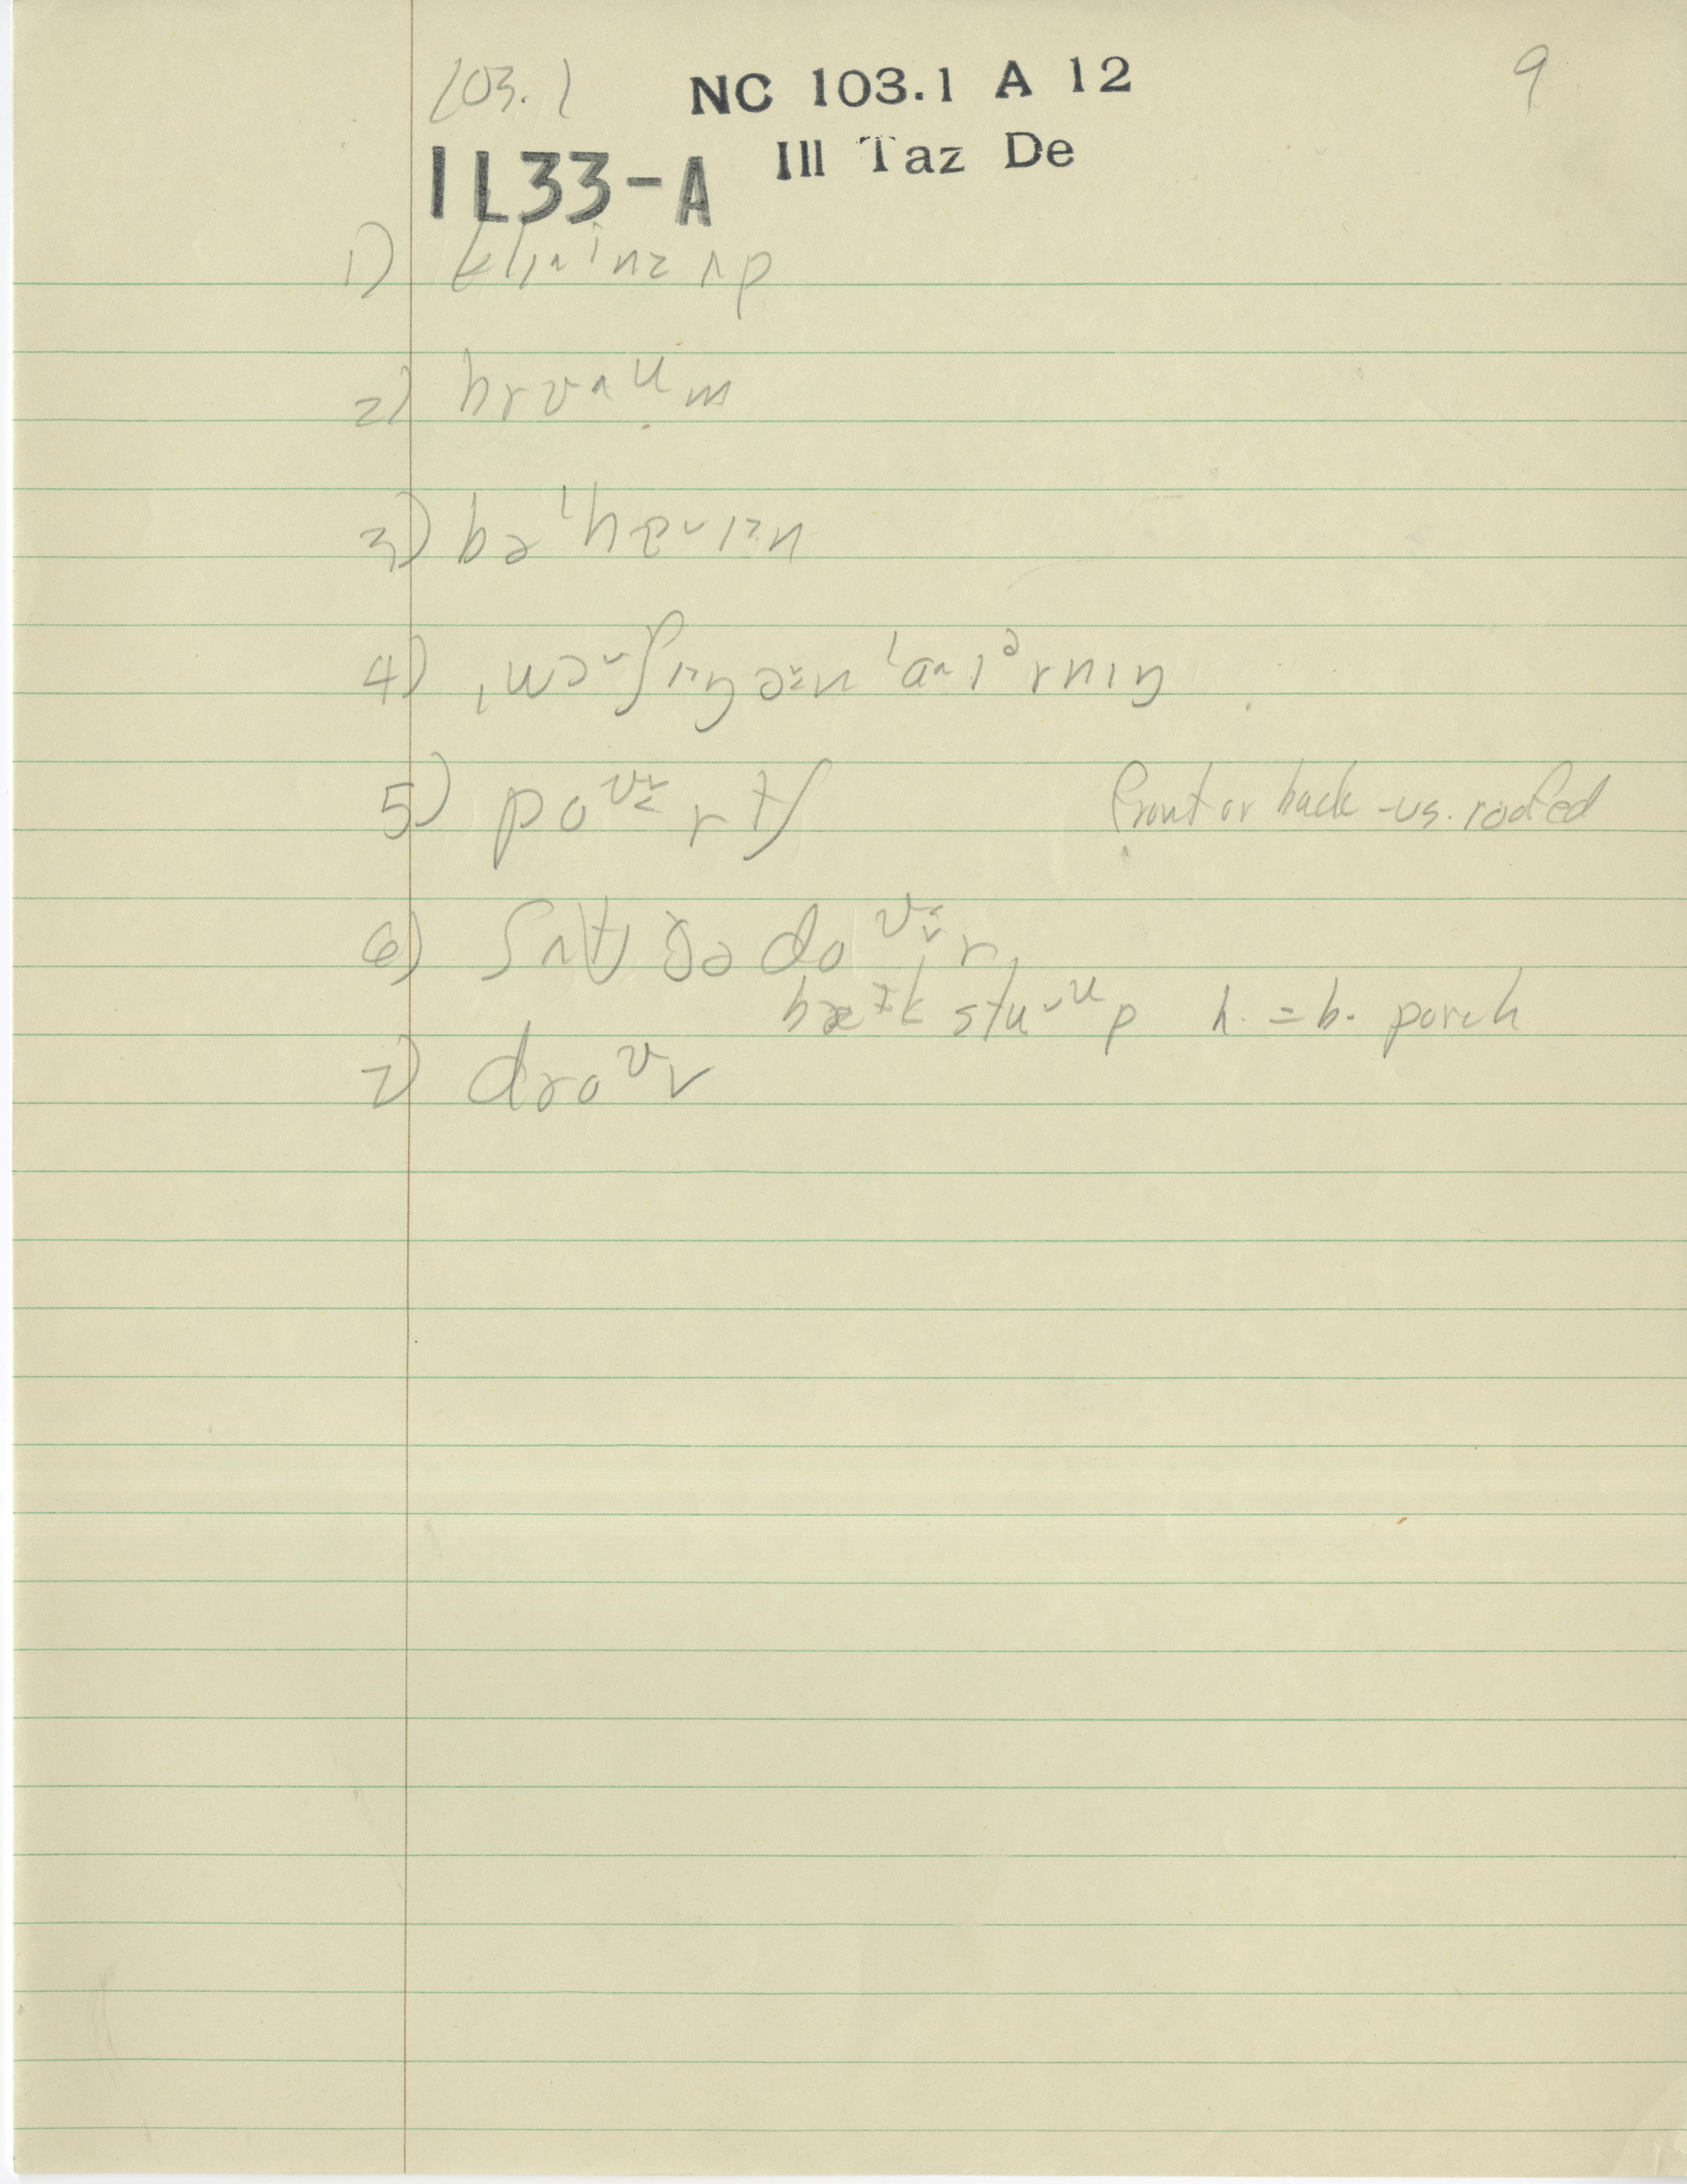 103.1 NC 103.1 A 12 9
IL33-A Ill Taz De
1) klɪ˄ⁱnz ʌp
2) brʊ˄ᵘm
3) bəˈhɐ˅ɪn
4) ˌwɔ˅ʃɪŋ ən ˈaɪᵊrnɪŋ
5) poᶹrtʃ front or back - us. roofed
6) ʃʌt ðə doᶹr
bæᵻk stu˅ᵘp h. = b. porch
7) droᶹr